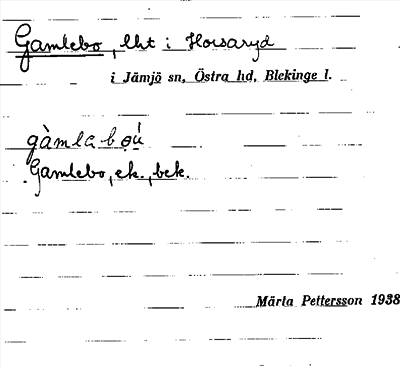 Gamlebo, lht i Horsaryd
i Jämjö sn, Östra hd, Blekinge l.
gàmlabǫu̇́
Gamlebo, ek., bek.
Märta Pettersson 1938